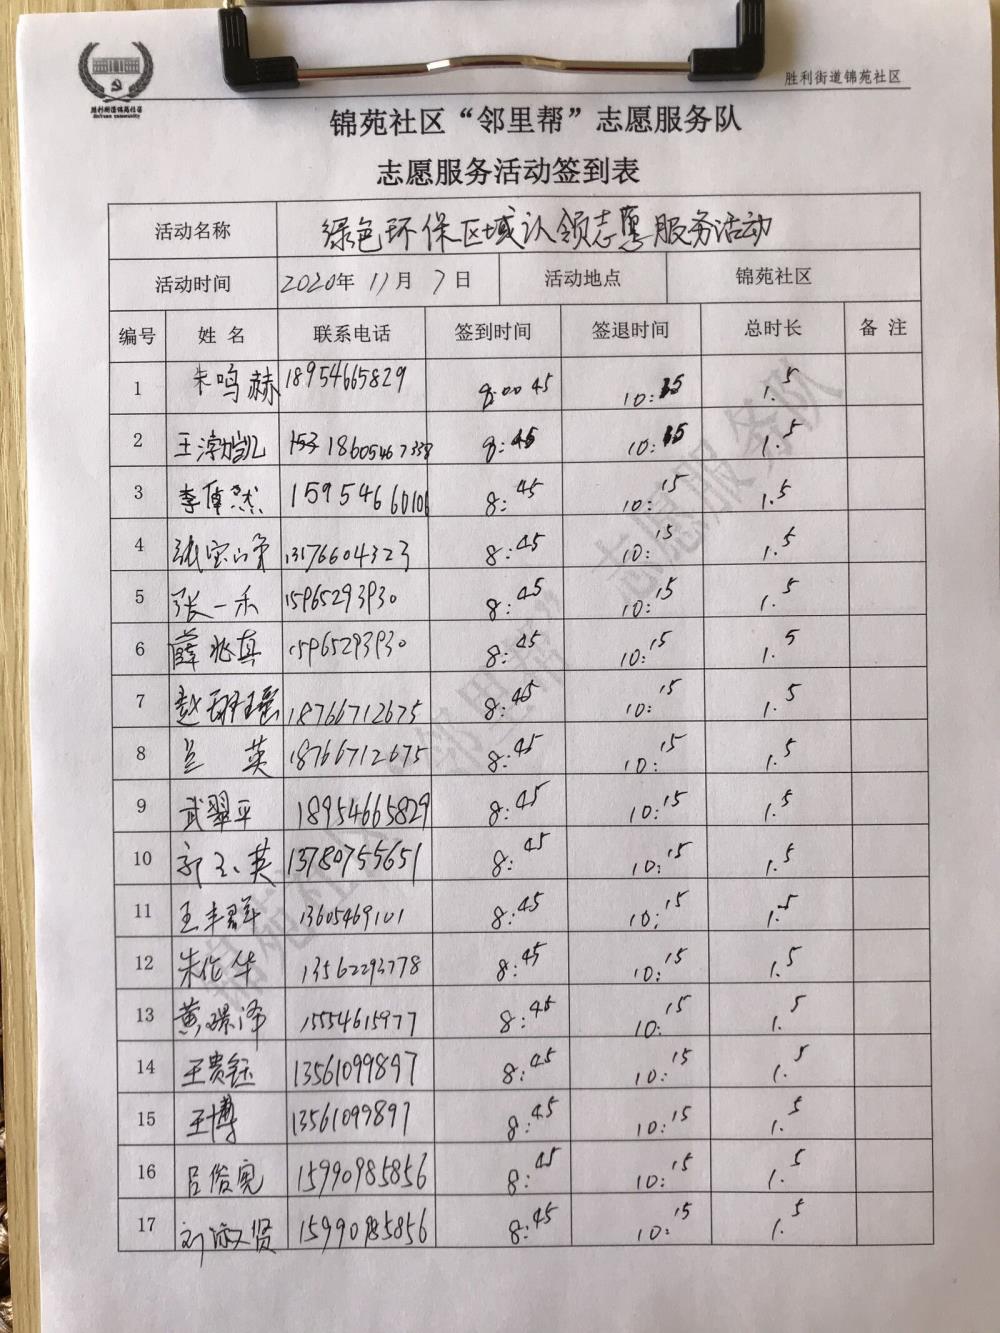 胜利街道锦苑社区
胜利街道锦苑社区
锦苑社区“邻里帮”志愿服务队
志愿服务活动签到表
活动名称 绿色环保区域认领志愿服务活动
活动时间 2020年 11月 7日 活动地点 锦苑社区
编号 姓 名 联系电话 签到时间 签退时间 总时长 备 注
1 朱鸣赫 18954665829 8:00 45 10:15 1.5
2 王渤凯 18605467338 8:45 10:15 1.5
3 李倬然 15954660106 8:45 10:15 1.5
4 张宝峰 13176604323 8:45 10:15 1.5
5 张一禾 15965293930 8:45 10:15 1.5
6 薛兆真 15965293930 8:45 10:15 1.5
7 赵 18766712675 8:45 10:15 1.5
8 兰 英 18766712675 8:45 10:15 1.5
9 武翠平 18954665829 8:45 10:15 1.5
10 郭玉英 13780755651 8:45 10:15 1.5
11 王丰群 13605469101 8:45 10:15 1.5
12 朱伦华 13562293778 8:45 10:15 1.5
13 黄璟泽 15554615977 8:45 10:15 1.5
14 王贵钰 13561099897 8:45 10:15 1.5
15 王博 13561099897 8:45 10:15 1.5
16 吕俊宪 15990985856 8:45 10:15 1.5
17 刘淑贤 15990985856 8:45 10:15 1.5
锦苑社区“邻里帮”志愿服务队